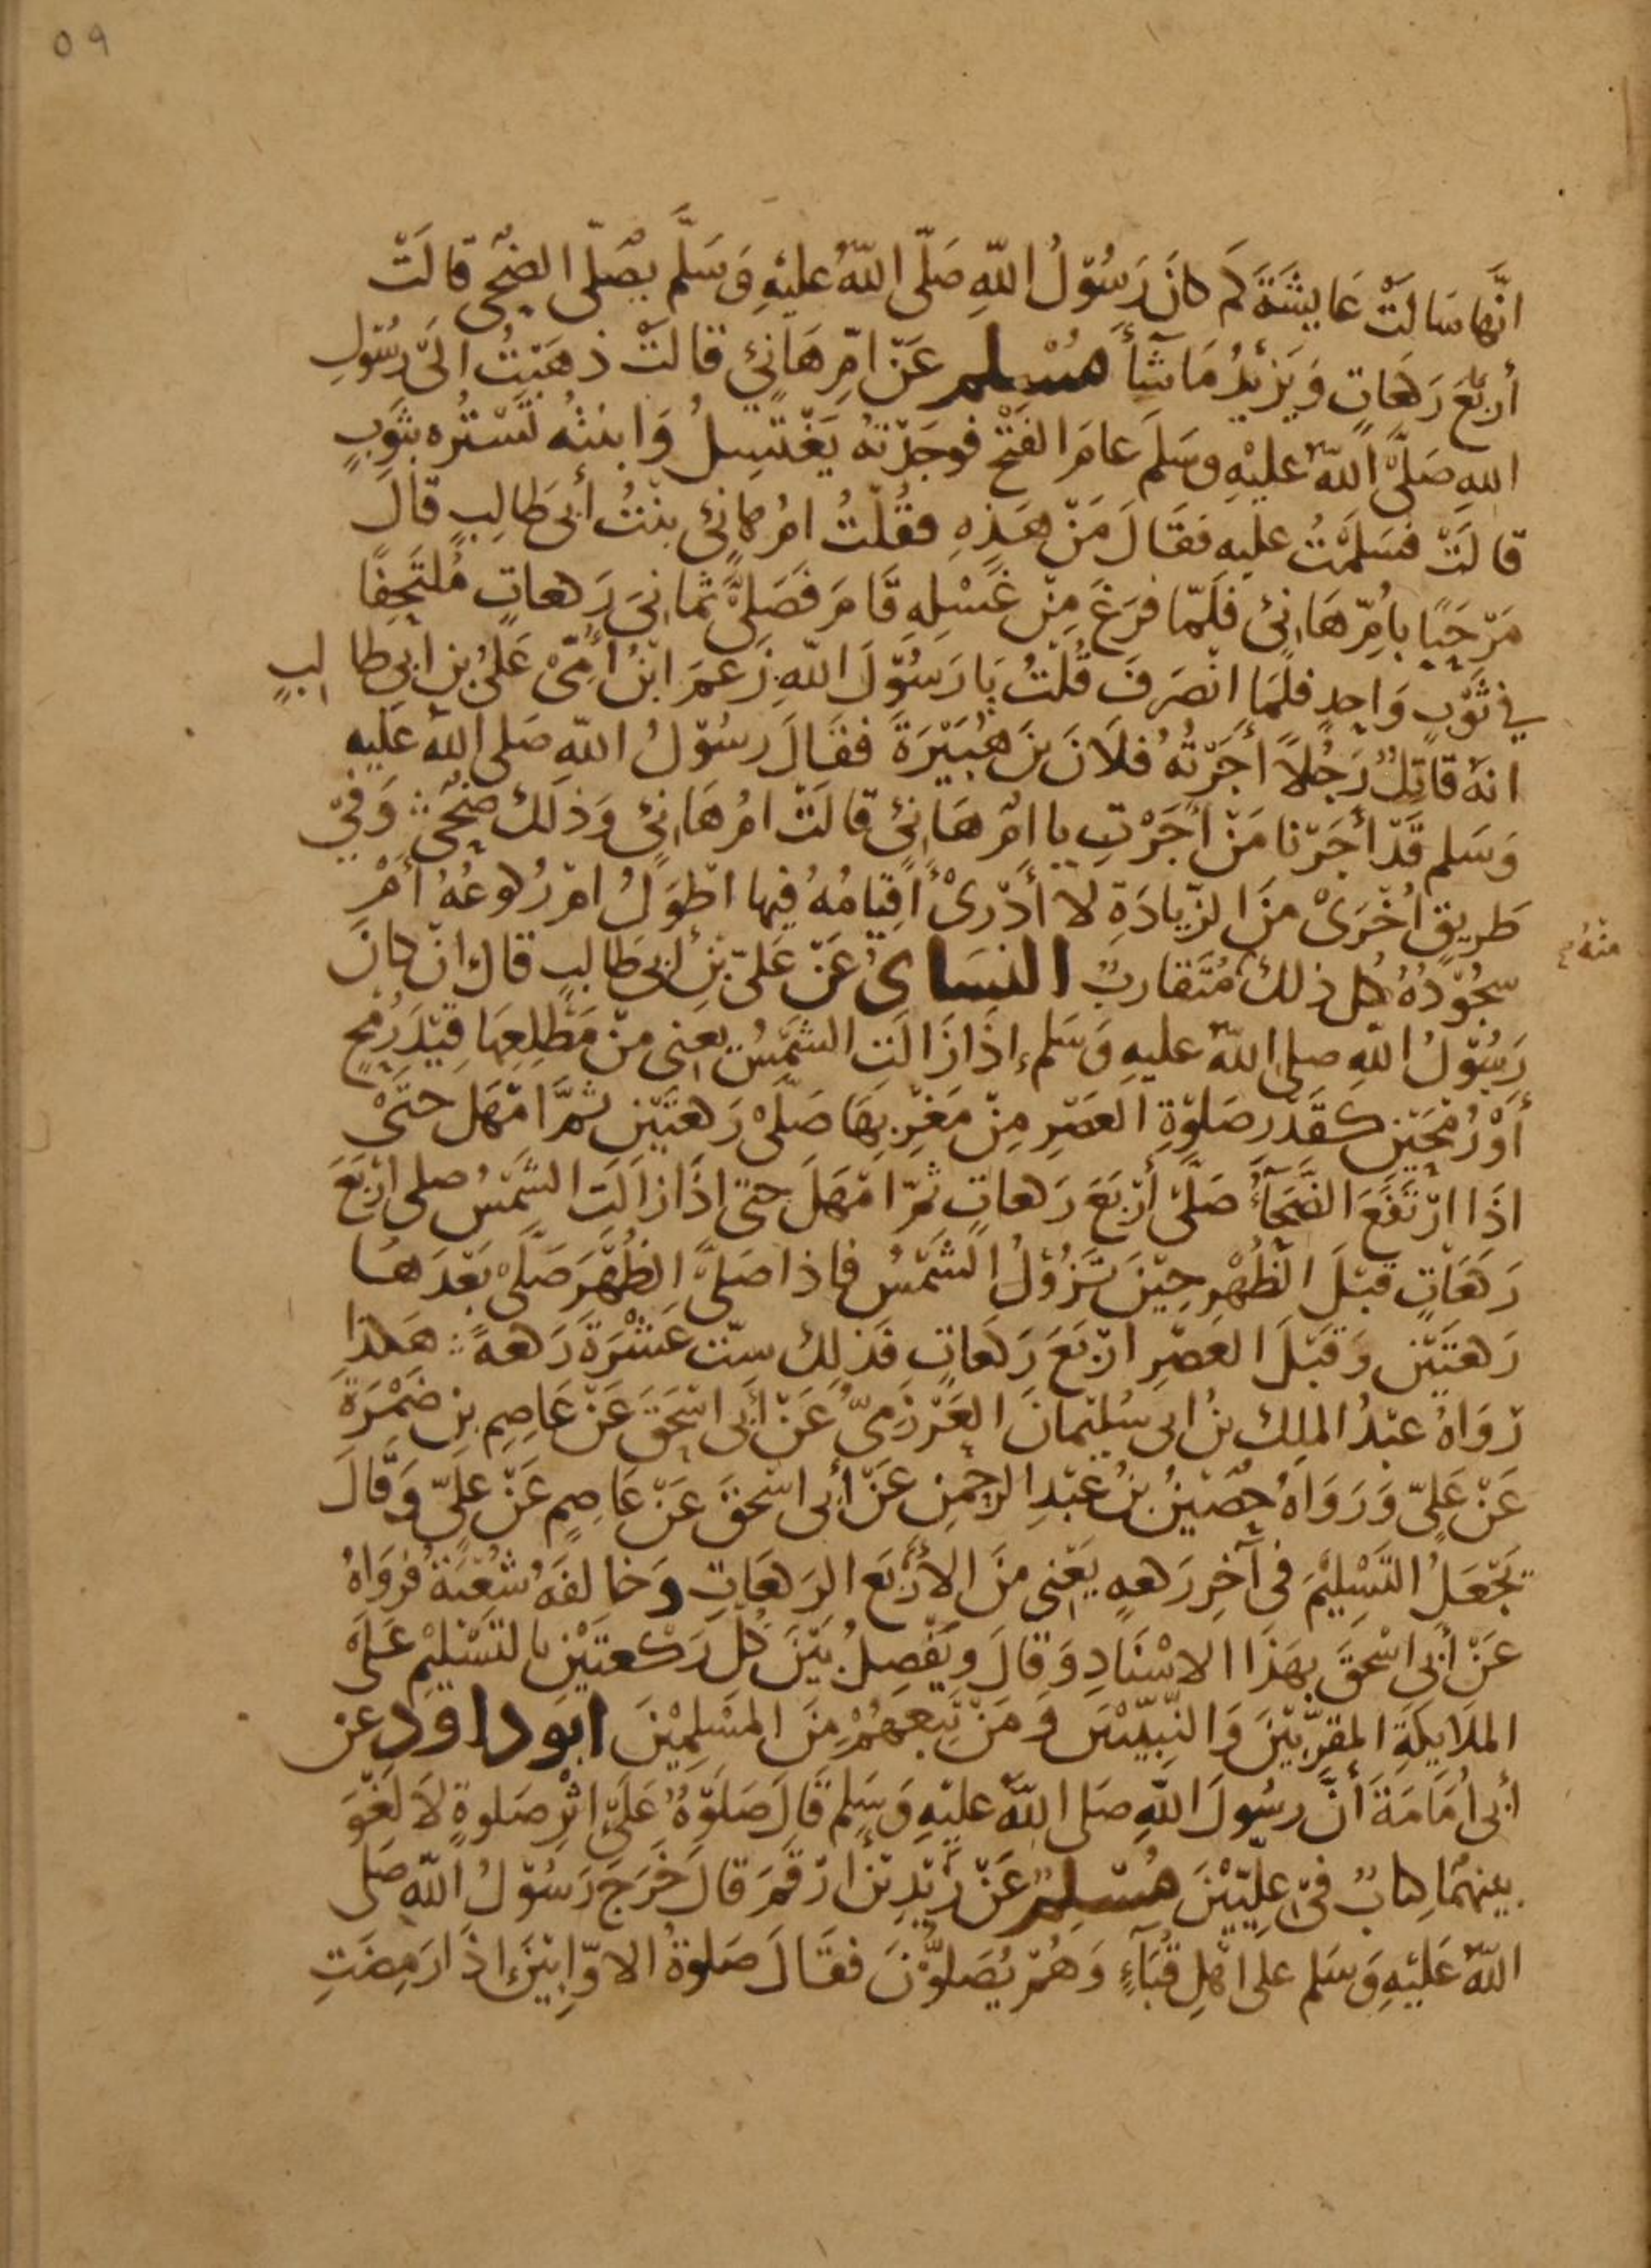 ٥٩
انَّها سَالَتْ عَايِشَةَ كَمْ كانَ رَسُوْلُ اللّهِ صَلّى اللّهُ عَليْهِ وَسَلَّم يصَلّى الضّحَى قالَتْ
أربَعَ رَكعَاتٍ وَيَزيْدُ مَا شَآءَ مُسْلِم عَنْ امِّ هَانِئٍ قالَتْ ذهَبْتُ الَى رَسُوْلِ
اللهِ صَلَّى اللّهُ عليْهِ وسَلمَ عامَ الفتْحِ فوجَدْتهُ يَغْتَسِلُ وَابنتُه تَسْتُرُه بثَوْبٍ
قالَتْ فسَلمْتُ عليه فقَالَ مَنْ هَذِهِ فقُلْتُ امُّ هانِئ بنْتُ أبى طالِبٍ قالَ
مَرْحَبًا بامِّ هَانِئ فلَمّا فرَغَ مِنْ غَسْلِهِ قَامَ فَصَلَّى ثمَانِىَ رَكعاتٍ مُلتَحِفًا
في ثَوْبٍ وَاحِدٍ فلَمَا انْصَرفَ قُلْتُ يَا رَسُوْلَ اللّهِ زَعمَ ابْنُ أُمِّىْ عَلىُّ بن ابي طالبٍ
انهُ قاتِلٌ رَجُلاً أجَرْتهُ فلاَنَ بنَ هُبَيْرَةَ فقَالَ رسُوْلُ اللّهِ صَلى اللّهُ عَلَيهِ
وَسَلم قَدْ أجَرْنا مَنْ أجَرْتِ يا امّ هَانِئ قالَتْ امُّ هَانِئ وَذلكَ ضُحًى وَفيْ
طَريقٍ اُخْرَىْ منَ الزّيادَةِ لا أدْرِىْ أقِيَامُهُ فيها اطْوَلُ امْ رُكوعُهُ أَمْ
سجُوْدُهُ كل ذلكَ مُتَقارِبٌ النسَاىُ عَنْ عَلىّ بْنِ أبى طَالبٍ قالَ انْ كانَ
منْهُ
رَسُوْلُ اللّهِ صلى اللّهُ عليهِ وَسَلم إذَا زَالَتِ الشَّمْسُ يعنِى منْ مَطْلِعِهَا قِيْدَ رُمْحٍ
أوْ رُمْحَيْنِ كقَدْرِ صَلوةِ العَصْرِ مِنْ مَغْرِبهَا صَلَّى رَكعَتَيْنِ ثمَّ امْهَل حتَّىْ
اذَا ارْتَفَعَ الضَّحَآءُ صَلَّى أرْبَعَ رَكعاتٍ ثمّ امْهَلَ حتى اذَا زالَتَ الشَّمْسُ صلى ارْبَعَ
رَكعَاتٍ قبْلَ الظُهْرِ حِيْنَ تَزُوْلُ الشَّمْسُ فاذا صَلىَّ الظُهْرَ صَلَّىْ بَعْدَهَا
رَكعتَيْنِ وَقبْلَ العَصْرِ ارْبَعَ رَكعَاتٍ فَذلِكَ سِتَ عَشْرَةَ رَكعةً هَكذا
رَوَاهُ عبْدُ الملِكِ بنُ ابى سُليْمانَ العَرْزَمِىُّ عَنْ أبى اسْحَقَ عَنْ عَاصِمِ بنِ ضَمْرَةَ
عَنْ عَلىّ وَرَوَاهُ حُصَيْنُ بْنُ عَبْدِ الرحْمنِ عَنْ أبى اسْحقَ عَنْ عَاصِمٍ عَنْ علِىّ وَقَالَ
تَجْعَلُ التَسْلِيْمَ فى آخِرِ رَكعهٍ يَعْنِى منَ الأرْبَعِ الرَكعَاتِ وَخالفَهُ شُعْبَةُ فروَاهُ
عَنْ أبى اسْحَقَ بهَذَا الاسْنَادِ وَقالَ ويَفْصِلُ بَيْنَ كُلّ رَكعتَيْنِ بالتَسْليْمِ عَلىَ
الملَايِكَةِ المقَرَّبِيْنَ وَالنّبِيّيْنَ وَمَنْ تَبِعَهُمْ مِنَ المسْلِمِيْنَ ابو داود عن
أبى اُمَامَةَ أنَّ رسُولَ اللّهِ صَلى اللّهُ عليْهِ وَسَلم قَالَ صَلوةٌ عَلىَ اثْرِ صَلوةٍ لاَ لَغْوَ
بينهُمَا كِتابٌ فِىْ عِلّيّيْنَ مُسْلِم عَنْ زَيْدِ بْن ارْقَمَ قالَ خَرَجَ رَسُوْلُ اللّهِ صَلى
اللّهُ عَليْهِ وَسَلم على اهْلِ قُبَآءٍ وَهُمْ يُصَلُّوْنَ فقَالَ صَلوةُ الاوّابِيْنَ اذَا رَمِضَتِ